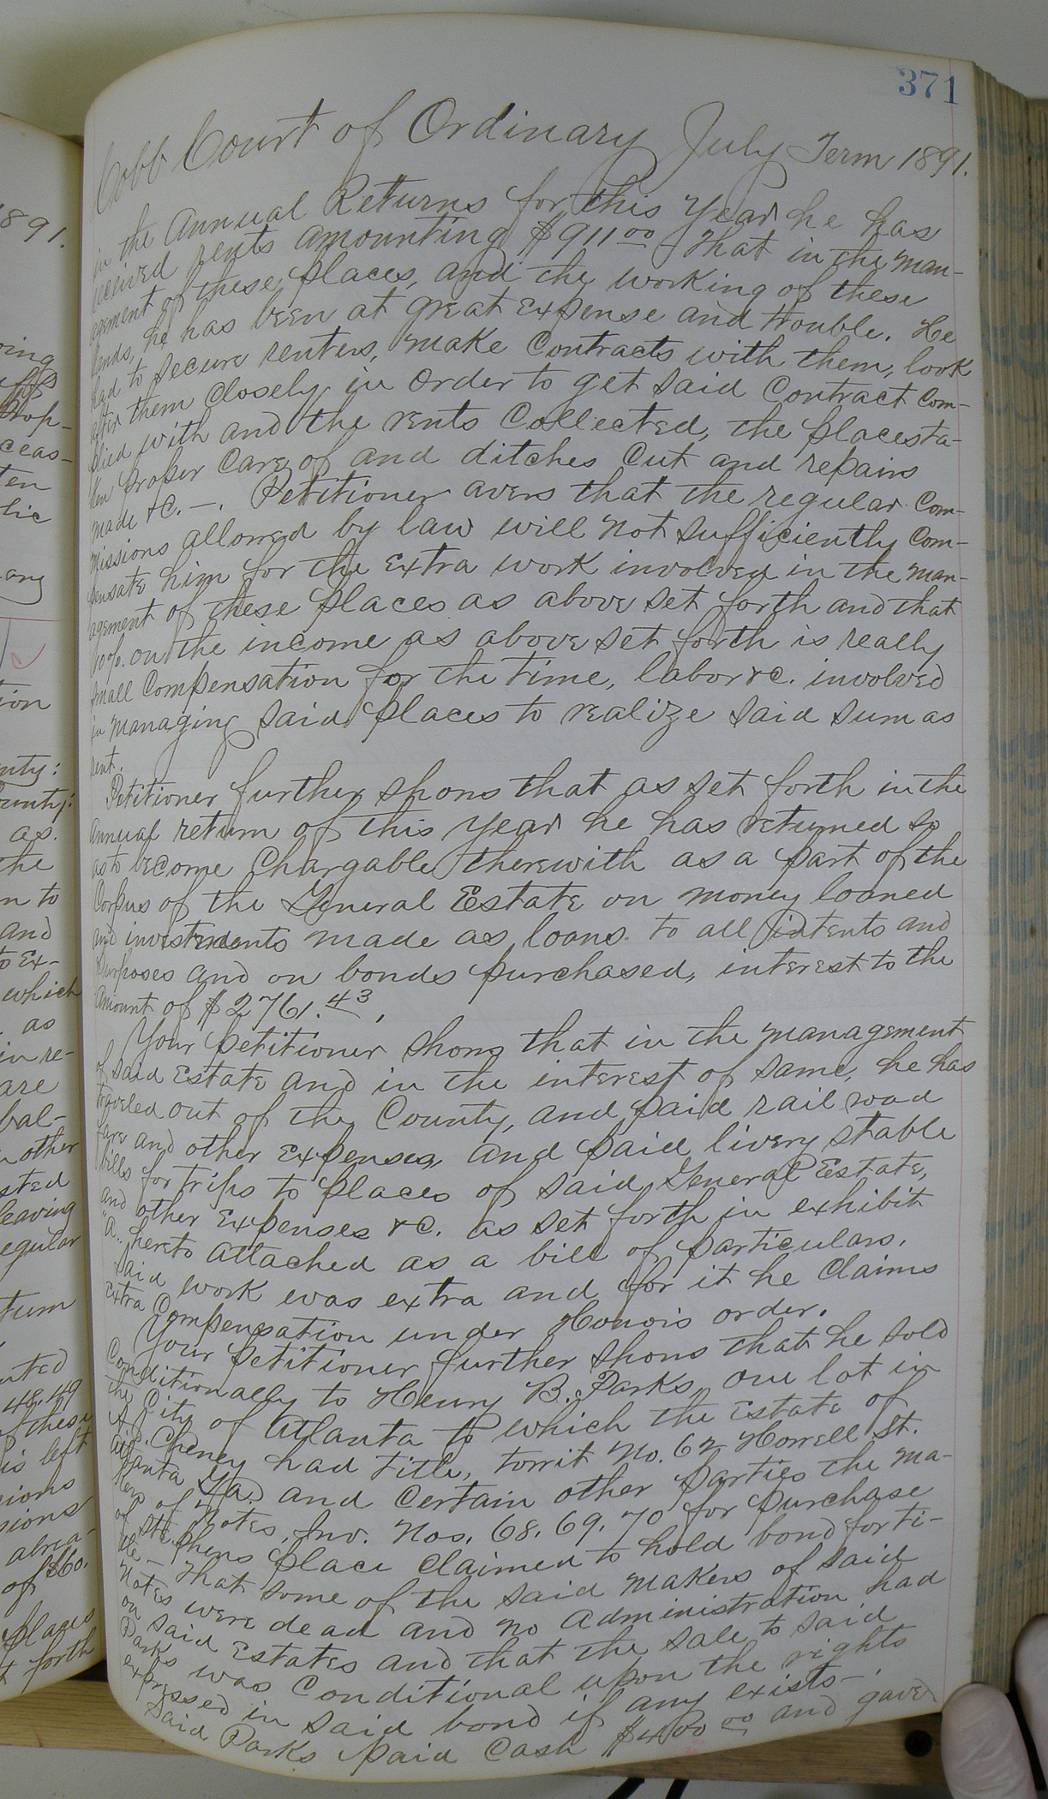 891.
371
Cobb Court of Ordinary July Term 1891.
in the Annual Returns for this year he has
received rents amounting $911 00 That in the man-
agement of these places, and the working of these
lands, he has been at great expense and trouble. He
had to secure renters, make contracts with them, look
after them closely in order to get said Contract com-
plied with and the rents Collected, the places ta-
ken proper care of and ditches cut and repairs
made &c. —. Petitioner avers that the regular Com-
missions allowed by law will not sufficiently com-
pensate him for the extra work involved in the man-
agement of these places as above set forth and that
10%. on the income as above set forth is really
small compensation for the time, labor &c. involved
in managing said places to realize said sum as
rent.
Petitioner further shows that as set forth in the
Annual return of this year he has returned so
as to become chargable therewith as a part of the
Corpus of the General Estate on money loaned
and investments made as loans to all intents and
purposes and on bonds purchased, interest to the
amount of $2761.43,
Your petitioner shows that in the management
of said Estate and in the interest of same, he has
traveled out of the County, and paid rail road
fare and other expenses, and paid livery stable
bills for trips to places of said General Estate,
and other expenses &c. as set forth in exhibit
"A" hereto attached as a bill of particulars.
Said work was extra and for it he claims
extra Compensation under Honors order.
Your petitioner further shows that he sold
Conditionally to Henry B. Parks, one lot in
the City of Atlanta to which the Estate of
A. J. Cheney had title, towit No. 62 Howell St.
Atlanta Ga. and certain other parties the ma-
kers of 4 Notes, Inv. Nos. 68. 69. 70 for purchase
of Stephens place claimed to hold bond for ti-
tle — That some of the said makers of said
Notes were dead and no administration had
on said Estates and that the sale to said
Parks was conditional upon the rights
expressed in said bond if any exists —.
Said Parks paid Cash $400 00 and gave